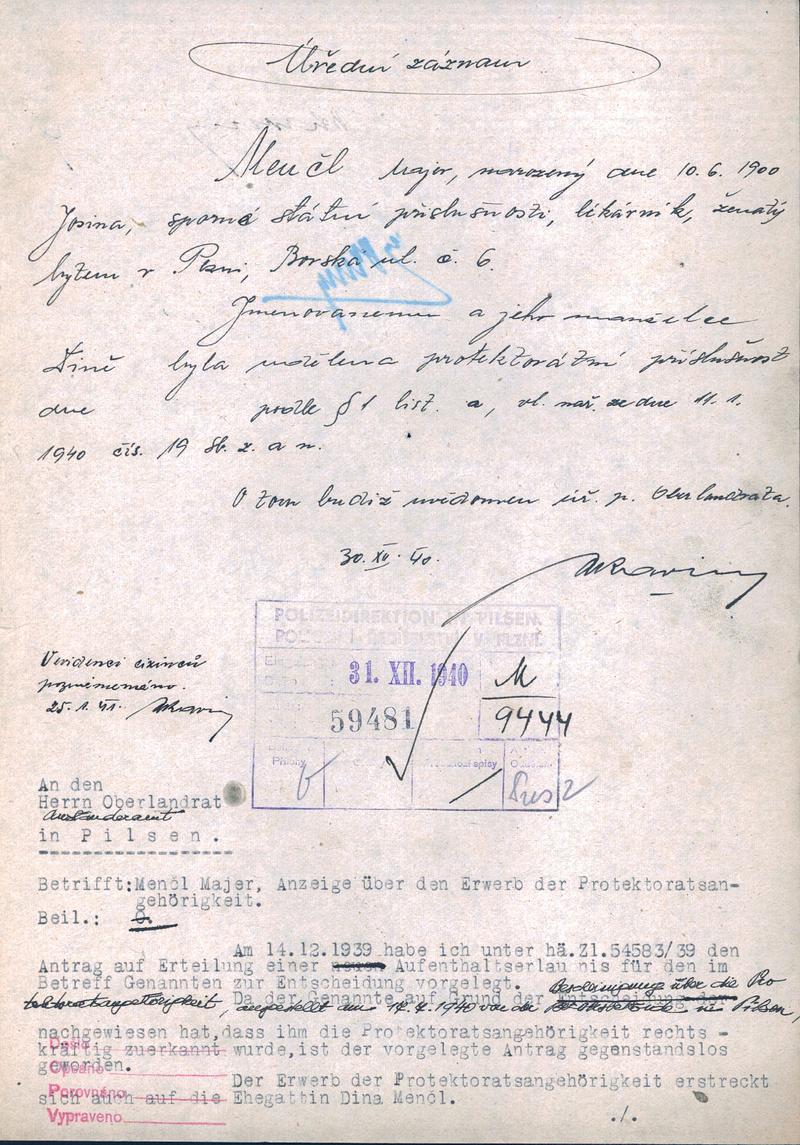 Úřední záznam
Menčl Majer, narozený dne 10.6. 1900
Josina, sporné státní příslušnosti, lékárník, ženatý
bytem v Plzni, Borská ul. č. 6.
Jmenovanému a jeho manželce
Dině byla udělena protektorátní příslušnost
dne podle § 1 list. a, vl. nař. ze dne 11.1.
1940 čís. 19 Sb. z. a n.
O tom budiž uvědoměn úř. p. Oberlandrata.
30. XII. 40.
POLIZEIDIREKTION IN PILSEN.
POLICEJNÍ ŘEDITELSTVÍ V PLZNI.
31. XII. 1940
M
59481
9444
Přílohy
V evidenci cizinců
poznamenáno.
25.1.41.
An den
Herrn Oberlandrat
Ausländeramt
in Pilsen.
Betrifft:Menčl Majer, Anzeige über den Erwerb der Protektoratsan-
gehörigkeit.
Beil.: 0.
Am 14.12.1939 habe ich unter hä.Zl.54583/39 den
Antrag auf Erteilung einer neuen Aufenthaltserlaubnis für den im
Betreff Genannten zur Entscheidung vorgelegt. Bescheinigung über die Pro
tektoratsangehörigkeit, ausgestellt am von der in Pilsen,
Da der Genannte auf Grund der Entscheidung der
nachgewiesen hat,dass ihm die Protektoratsangehörigkeit rechts -
kräftig zuerkannt wurde,ist der vorgelegte Antrag gegenstandslos
geworden.
Der Erwerb der Protektoratsangehörigkeit erstreckt
sich auch auf die Ehegattin Dina Menčl.
Došlo
Opsáno
Porovnáno
Vypraveno
./.